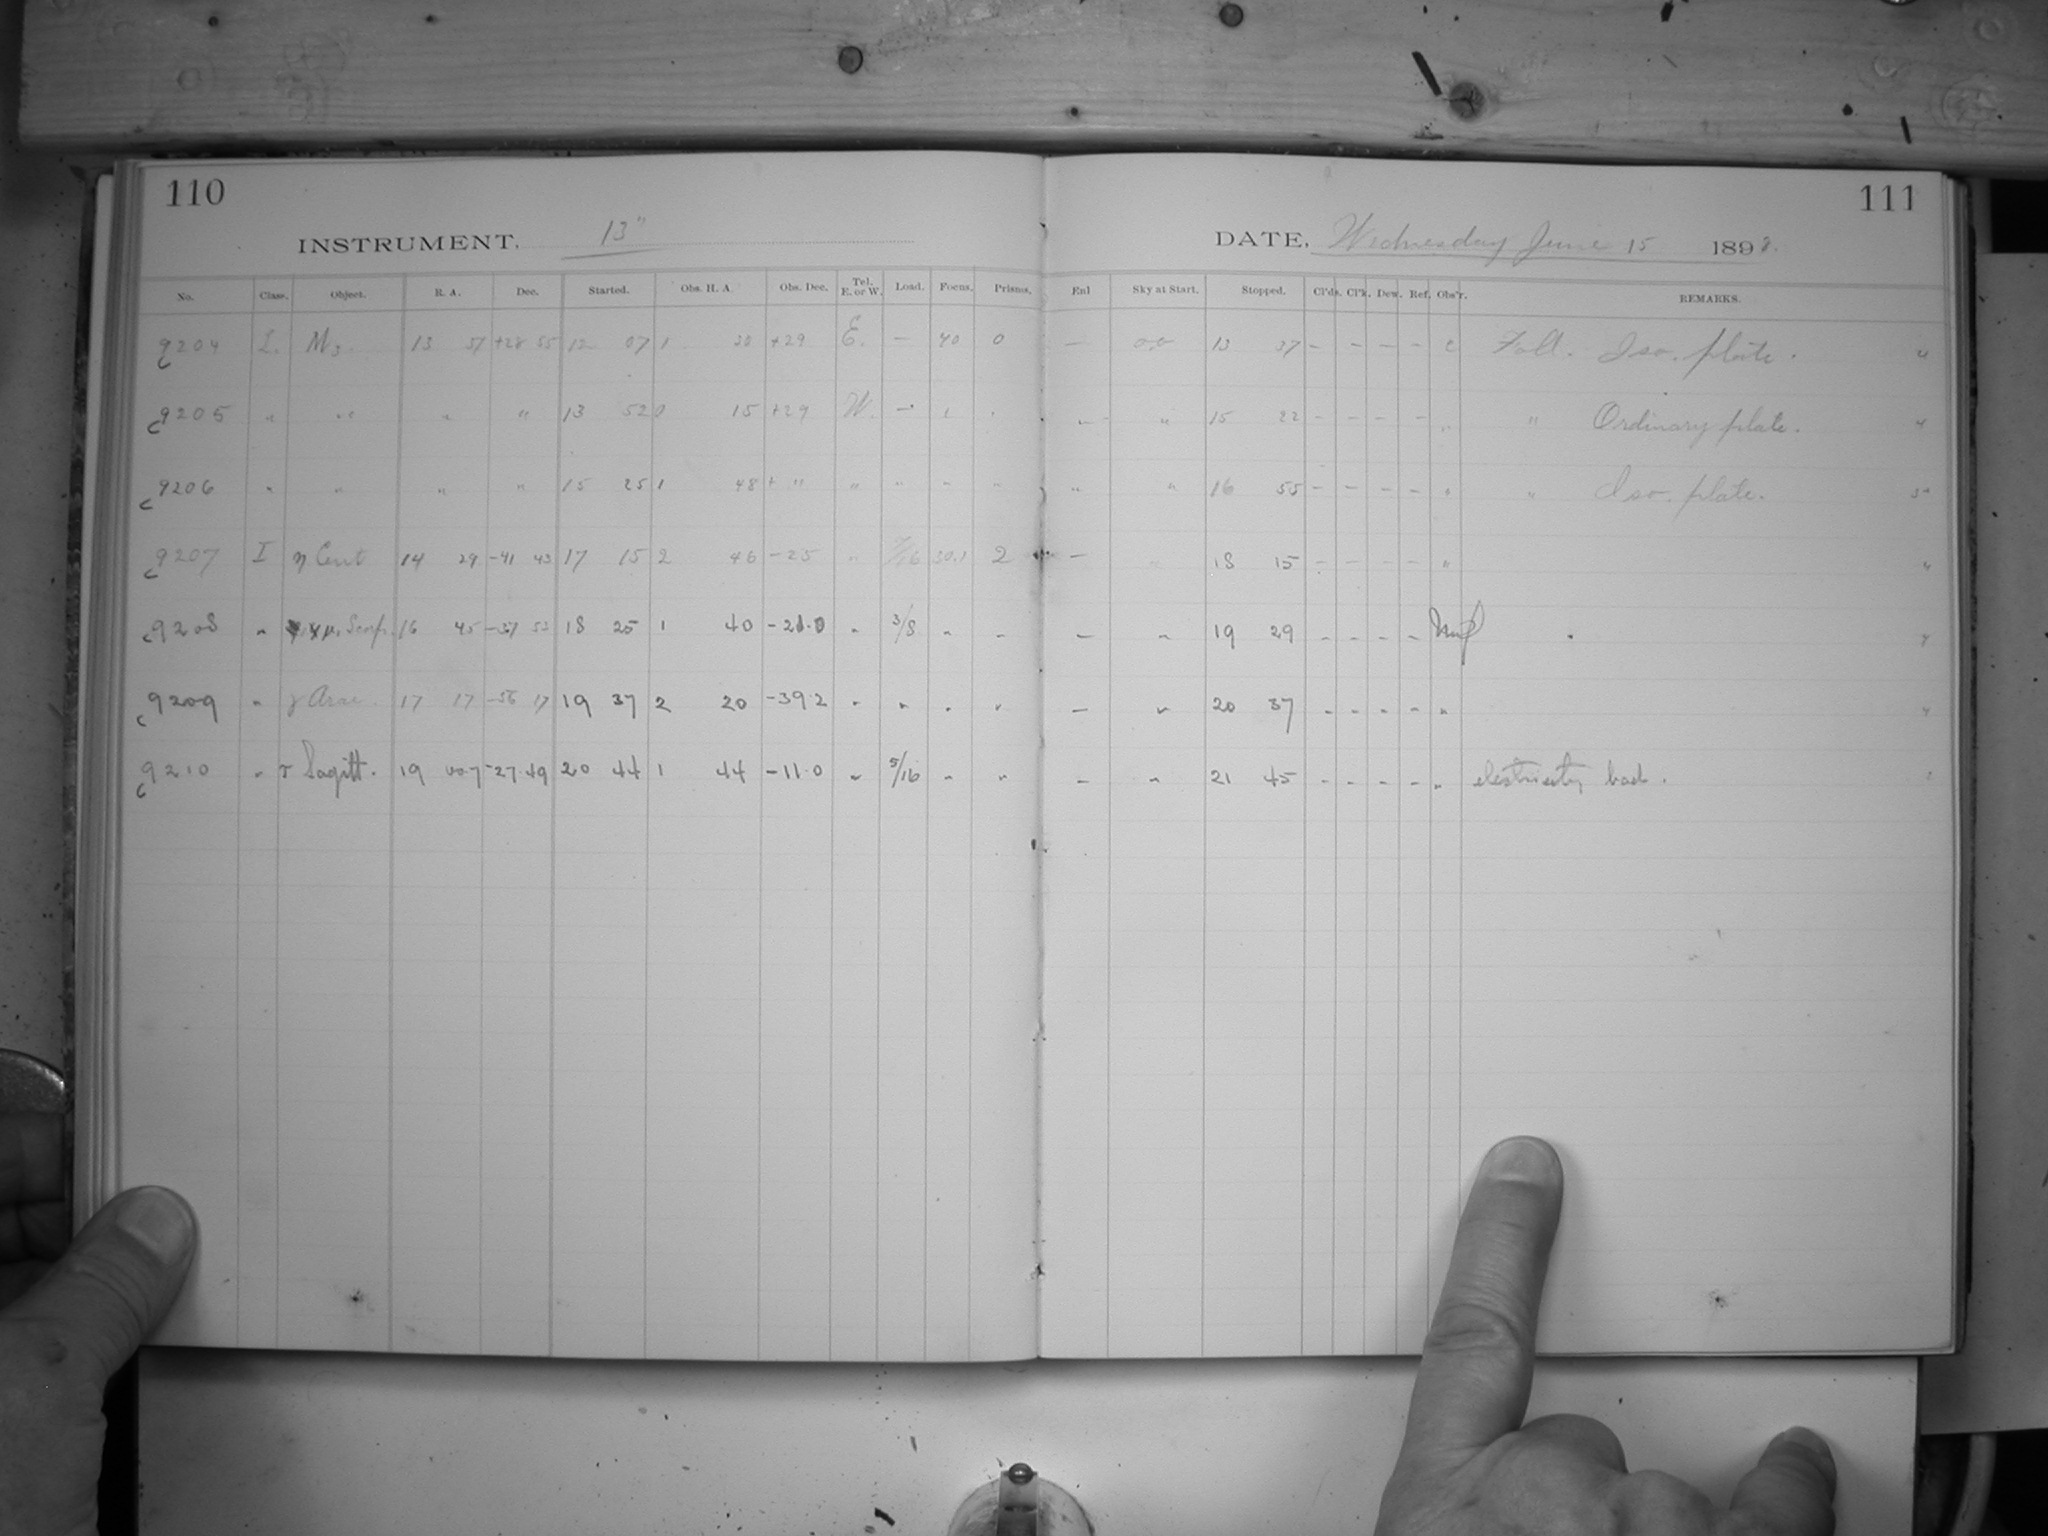 110
111
INSTRUMENT. 13"
DATE, Wednesday June 15 1898.
No. Class. Object. R. A. Dec. Started. Obs. H. A. Obs. Dec. Tel. E. or W. Load. Focus. Prisms. Enl Sky at Start. Stopped. Cl'ds. Cl'k. Dew. Ref. Obs'r. REMARKS.
c9204 L. M3. 13 37 +28 55 12 07 1 30 +29 E. — 40 0 — 0.0 13 37 - - - - C Foll. Iso. plate. 4
c9205 " " " " 13 52 0 15 +29 W. — " " " " 15 22 - - - - " " Ordinary plate. 4
c9206 " " " " 15 25 1 48 + " " " " " " " 16 55 - - - - " " Iso. plate.
c9207 I η Cent 14 29 -41 43 17 15 2 46 -25 " 30.1 2 — " 18 15 - - - - "
c9208 " μ, Scorp. 16 45 -37 53 18 25 1 40 -21.0 " 3/8 " " — " 19 29 - - - -
c9209 " γ Arae. 17 17 -56 17 19 37 2 20 -39.2 " " " " — " 20 37 - - - - "
c9210 " τ Sagitt. 19 00.7 -27.49 20 44 1 44 -11.0 " 5/16 " " — " 21 45 - - - - " electricity bad.